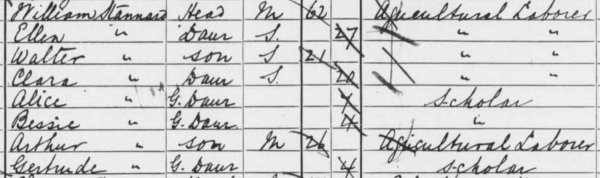 William Stannard Head M 62 Agricultural Laborer
Ellen " Daur S 27 " "
Walter " son S 21 " "
Clara " Daur S 20 " "
Alice " G. Daur Scholar
Bessie " G. Daur 4 "
Arthur " son M 26 Agricultural Laborer
Gertrude " G. Daur 4 Scholar